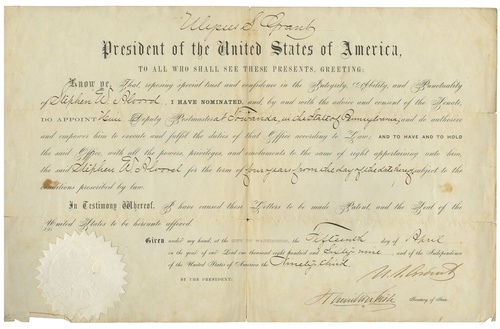 Ulysses S. Grant
President of the United States of America,
TO ALL WHO SHALL SEE THESE PRESENTS, GREETING:
Know ye, That reposing special trust and confidence in the Integrity, Ability, and Punctuality
of Stephen W. Alvord, I HAVE NOMINATED, and, by and with the advice and consent of the Senate,
DO APPOINT Him Deputy Postmaster at Towanda, in the State of Pennsylvania, and do authorize
and empower him to execute and fulfil the duties of that Office according to Law, AND TO HAVE AND TO HOLD
the said Office, with all the powers, privileges, and emoluments to the same of right appertaining unto him,
the said Stephen W. Alvord for the term of four years from the day of the date hereof subject to the
conditions prescribed by law.
In Testimony Whereof, I have caused these Letters to be made Patent, and the Seal of the
United States to be hereunto affixed.
Given under my hand, at the CITY OF WASHINGTON, the Fifteenth day of April
in the year of our Lord one thousand eight hundred and Sixty nine, and of the Independence
of the United States of America the Ninety third.
U. S. Grant
BY THE PRESIDENT:
Hamilton Fish Secretary of State.